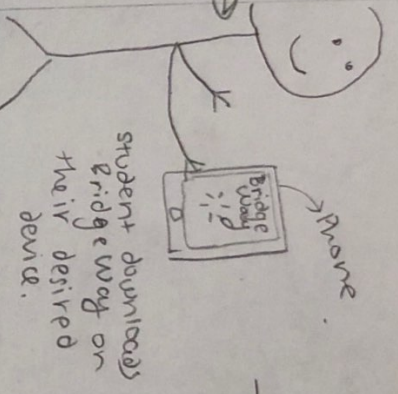 Phone
Bridge
Way
student downloads
Bridgeway on
their desired
device.